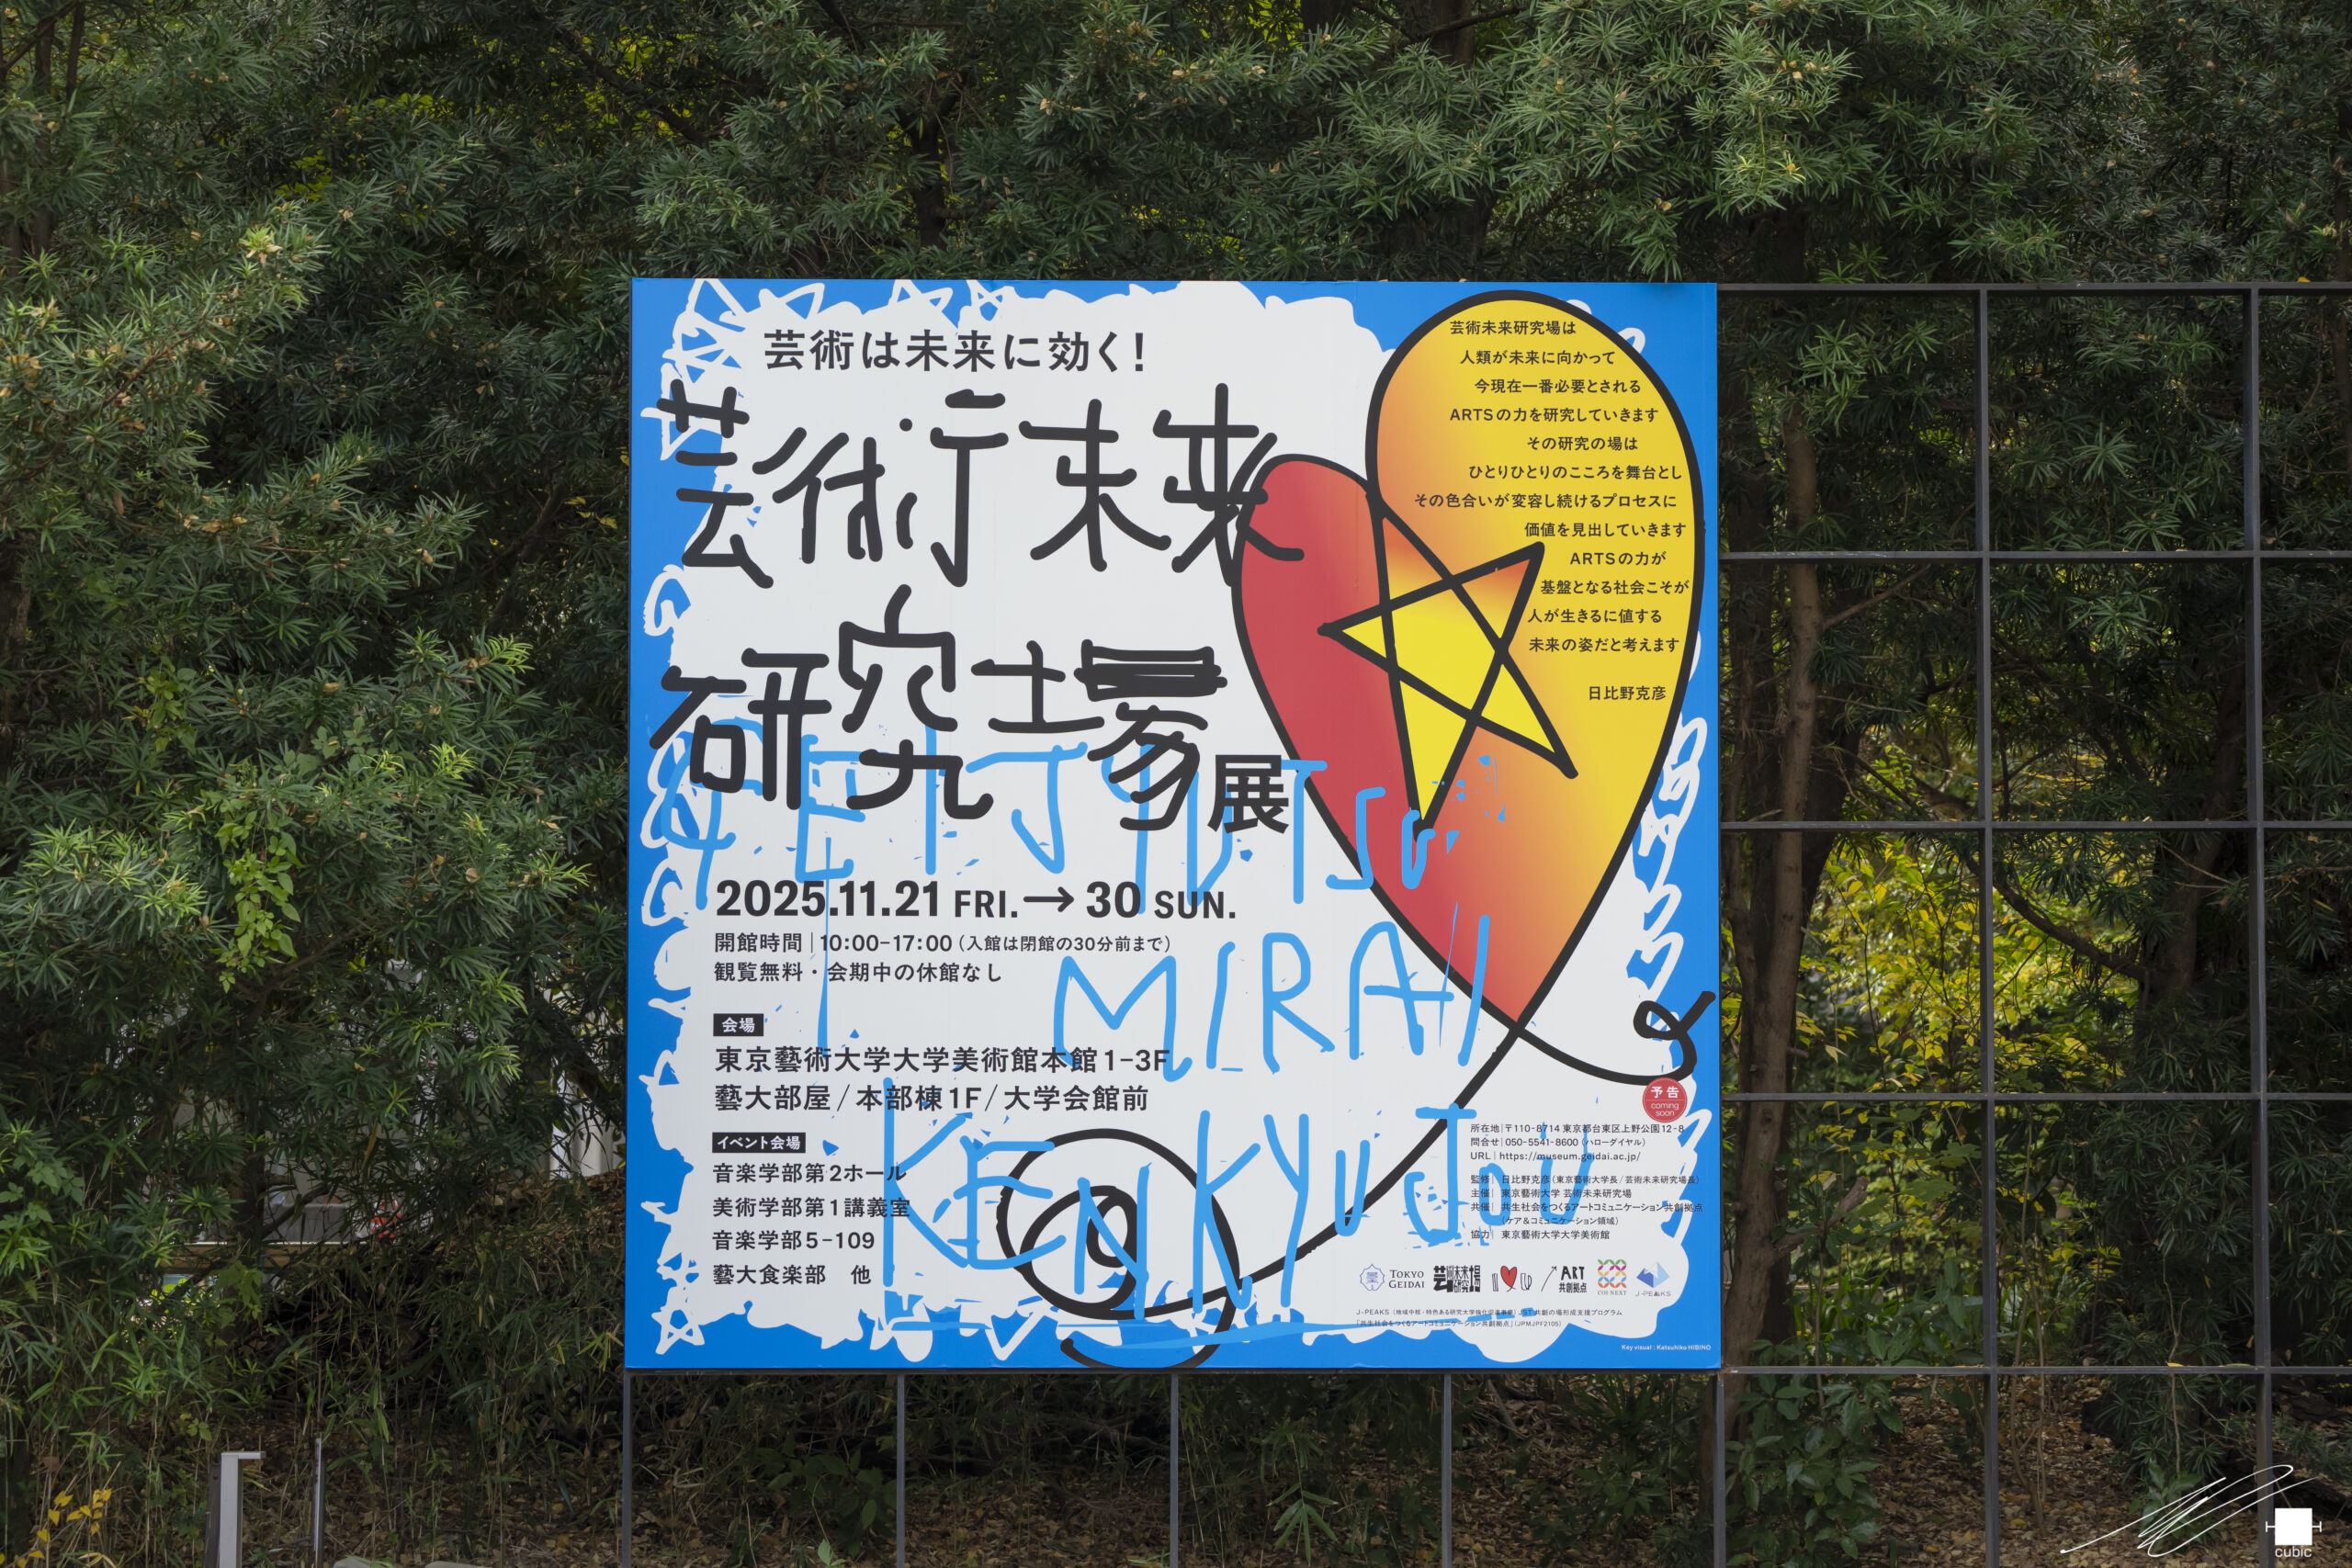 芸術は未来に効く!
芸術未来
研究場展
GEIJYUTSU
MIRAI
KENKYUJOU
芸術未来研究場は
人類が未来に向かって
今現在一番必要とされる
ARTSの力を研究していきます
その研究の場は
ひとりひとりのこころを舞台とし
その色合いが変容し続けるプロセスに
価値を見出していきます
ARTSの力が
基盤となる社会こそが
人が生きるに値する
未来の姿だと考えます
日比野克彦
2025.11.21 FRI.→30 SUN.
開館時間|10:00-17:00(入館は閉館の30分前まで)
観覧無料・会期中の休館なし
会場
東京藝術大学大学美術館本館1-3F
藝大部屋/本部棟1F/大学会館前
イベント会場
音楽学部第2ホール
美術学部第1講義室
音楽学部5-109
藝大食楽部 他
予告
coming
soon
所在地|〒110-8714 東京都台東区上野公園12-8
問合せ|050-5541-8600(ハローダイヤル)
URL|https://museum.geidai.ac.jp/
監修|日比野克彦(東京藝術大学長/芸術未来研究場長)
主催|東京藝術大学 芸術未来研究場
共催|共生社会をつくるアートコミュニケーション共創拠点
(ケア&コミュニケーション領域)
協力|東京藝術大学大学美術館
TOKYO
GEIDAI
芸術未来場
研究
I U
ART
共創拠点
COI-NEXT
J-PEAKS
J-PEAKS(地域中核・特色ある研究大学強化促進事業)JST 共創の場形成支援プログラム
「共生社会をつくるアートコミュニケーション共創拠点」(JPMJPF2105)
Key visual : Katsuhiko HIBINO
cubic